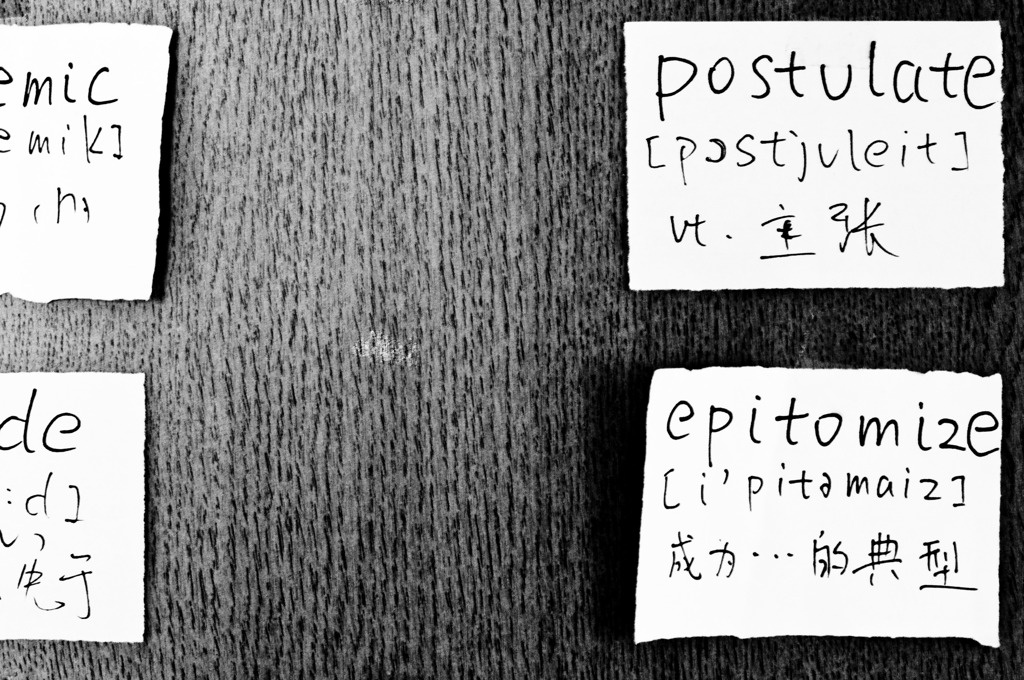 emic
emik]
n
postulate
[pɔstjuleit]
vt. 主张
de
:d]
免于
epitomize
[i'pitəmaiz]
成为…的典型